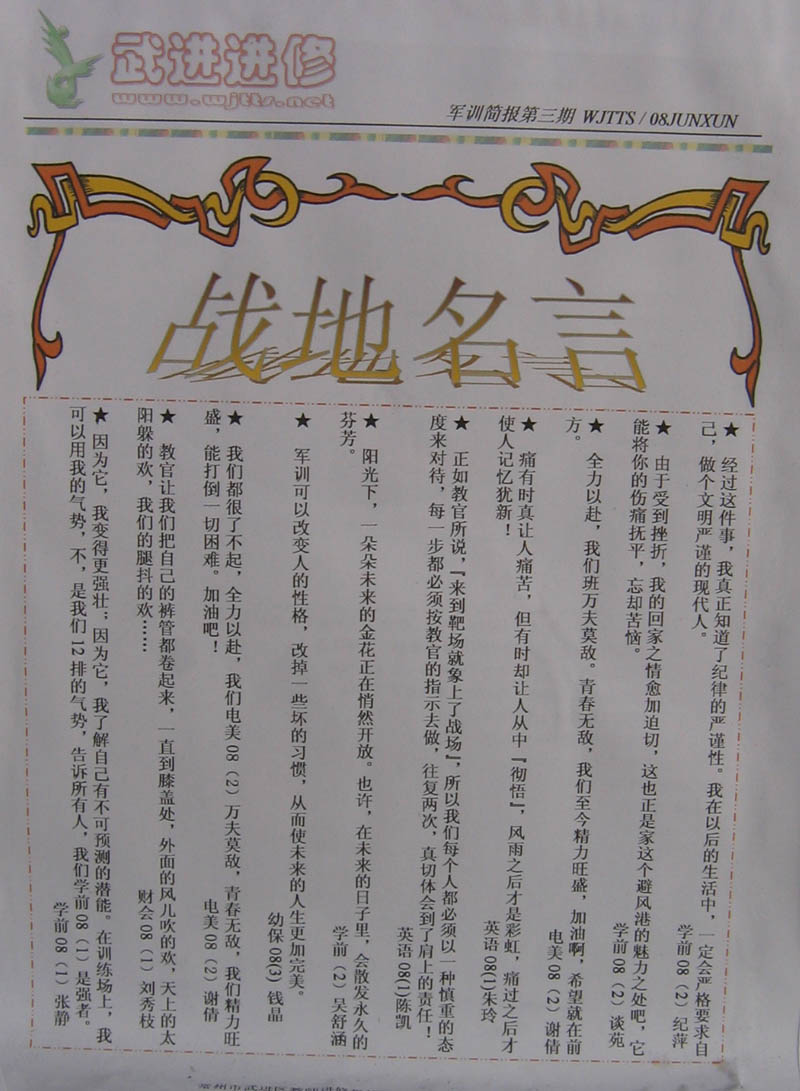 武进进修
www.wjtts.net
军训简报第三期 WJTTS / 08JUNXUN
战地名言
★ 经过这件事，我真正知道了纪律的严谨性。我在以后的生活中，一定会严格要求自
己，做个文明严谨的现代人。
学前 08（2）纪萍
★ 由于受到挫折，我的回家之情愈加迫切，这也正是家这个避风港的魅力之处吧，它
能将你的伤痛抚平，忘却苦恼。
学前 08（2）谈苑
★ 全力以赴，我们班万夫莫敌。青春无敌，我们至今精力旺盛，加油啊，希望就在前
方。
电美 08（2）谢倩
★ 痛有时真让人痛苦，但有时却让人从中『彻悟』，风雨之后才是彩虹，痛过之后才
使人记忆犹新！
英语 08(1)朱玲
★ 正如教官所说，『来到靶场就象上了战场』，所以我们每个人都必须以一种慎重的态
度来对待，每一步都必须按教官的指示去做，往复两次，真切体会到了肩上的责任！
英语 08(1)陈凯
★ 阳光下，一朵朵未来的金花正在悄然开放。也许，在未来的日子里，会散发永久的
芬芳。
学前（2）吴舒涵
★ 军训可以改变人的性格，改掉一些坏的习惯，从而使未来的人生更加完美。
幼保 08(3) 钱晶
★ 我们都很了不起，全力以赴，我们电美 08（2）万夫莫敌，青春无敌，我们精力旺
盛，能打倒一切困难。加油吧！
电美 08（2）谢倩
★ 教官让我们把自己的裤管都卷起来，一直到膝盖处，外面的风儿吹的欢，天上的太
阳躲的欢，我们的腿抖的欢……
财会 08（1）刘秀枝
★ 因为它，我变得更强壮；因为它，我了解自己有不可预测的潜能。在训练场上，我
可以用我的气势，不，是我们 12 排的气势，告诉所有人，我们学前 08（1）是强者。
学前 08（1）张静